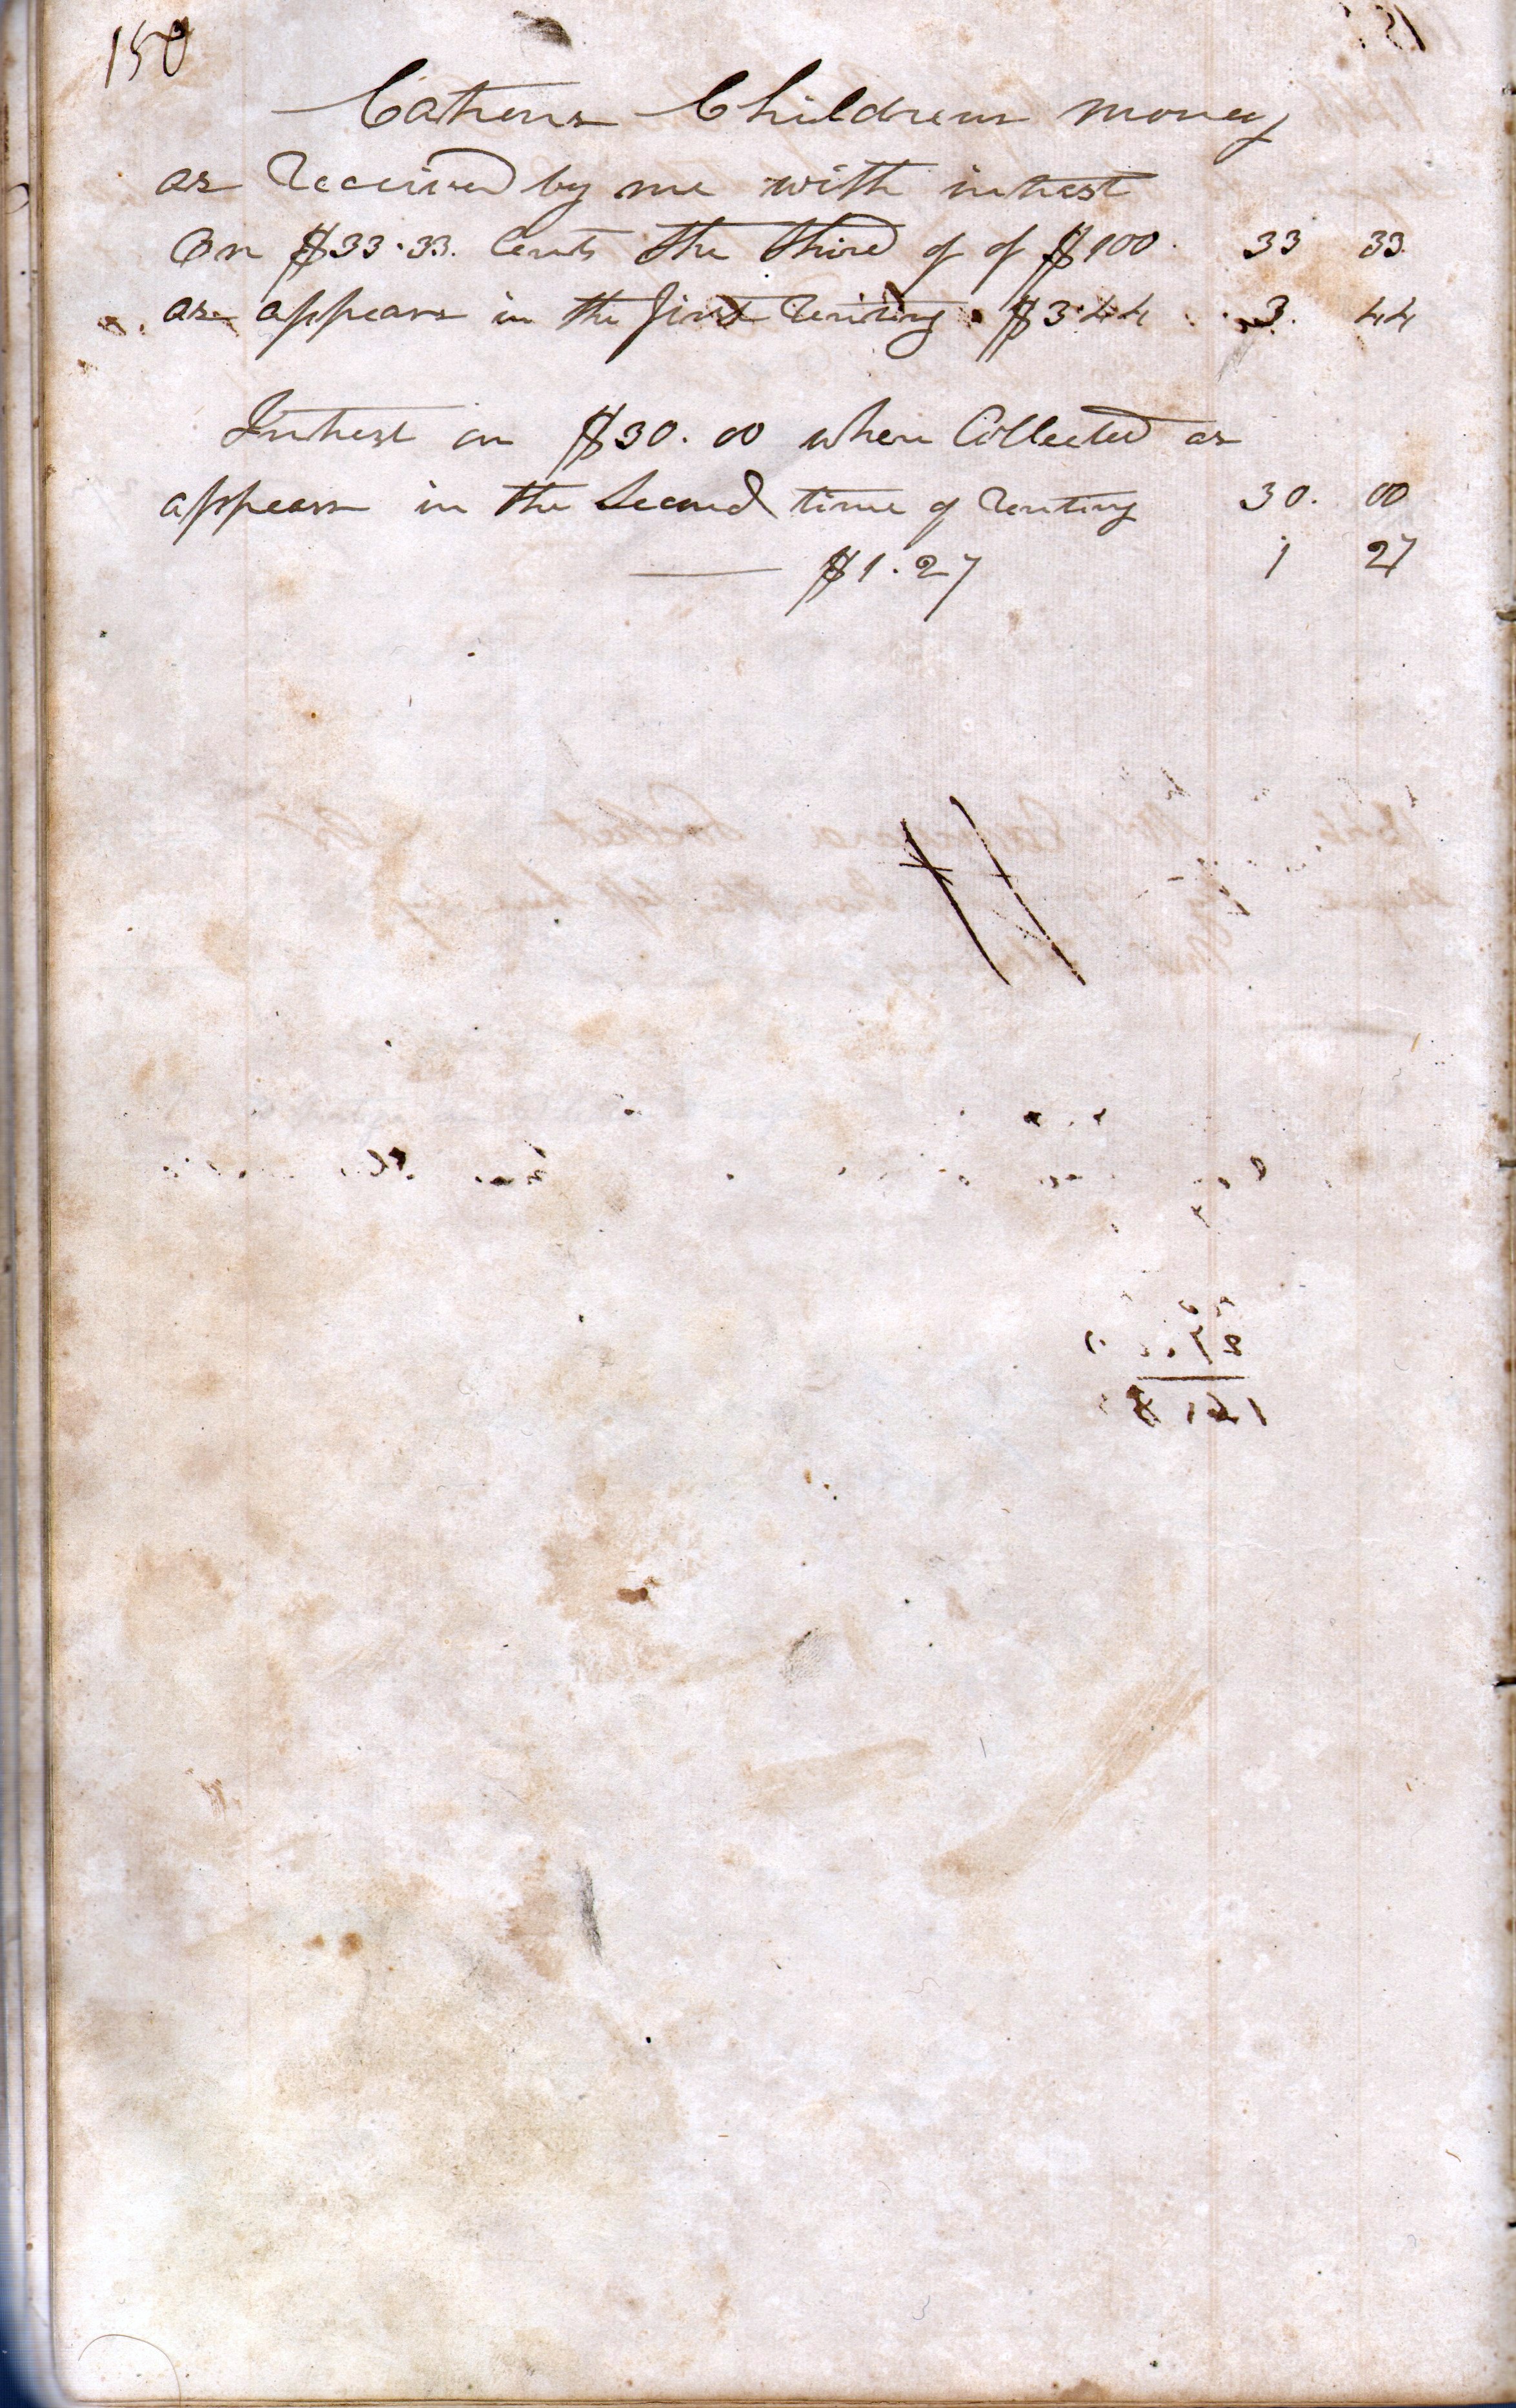 150
Cathens Childrens money
as Received by me with intrest
On $33.33. Cents the third of of $100. 33 33
as appears in the first Renting. $3.44 3. 44
Intrest on $30.00 when Collected as
appears in the Second time of Renting 30. 00
$1.27 1 27